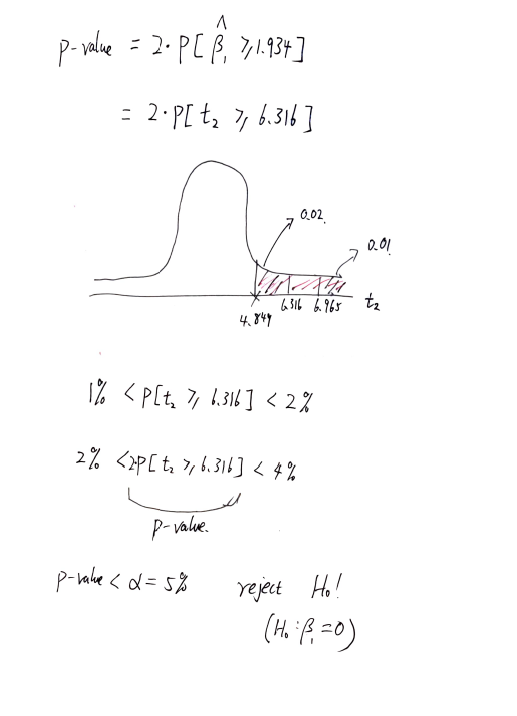 p-value = 2·P[β̂₁ ≥ 1.934]
= 2·P[t₂ ≥ 6.316]
0.02.
0.01
4.849 6.316 6.965 t₂
1% < P[t₂ ≥ 6.316] < 2%
2% < 2·P[t₂ ≥ 6.316] < 4%
p-value.
p-value < α = 5% reject H₀!
(H₀: β₁ = 0)